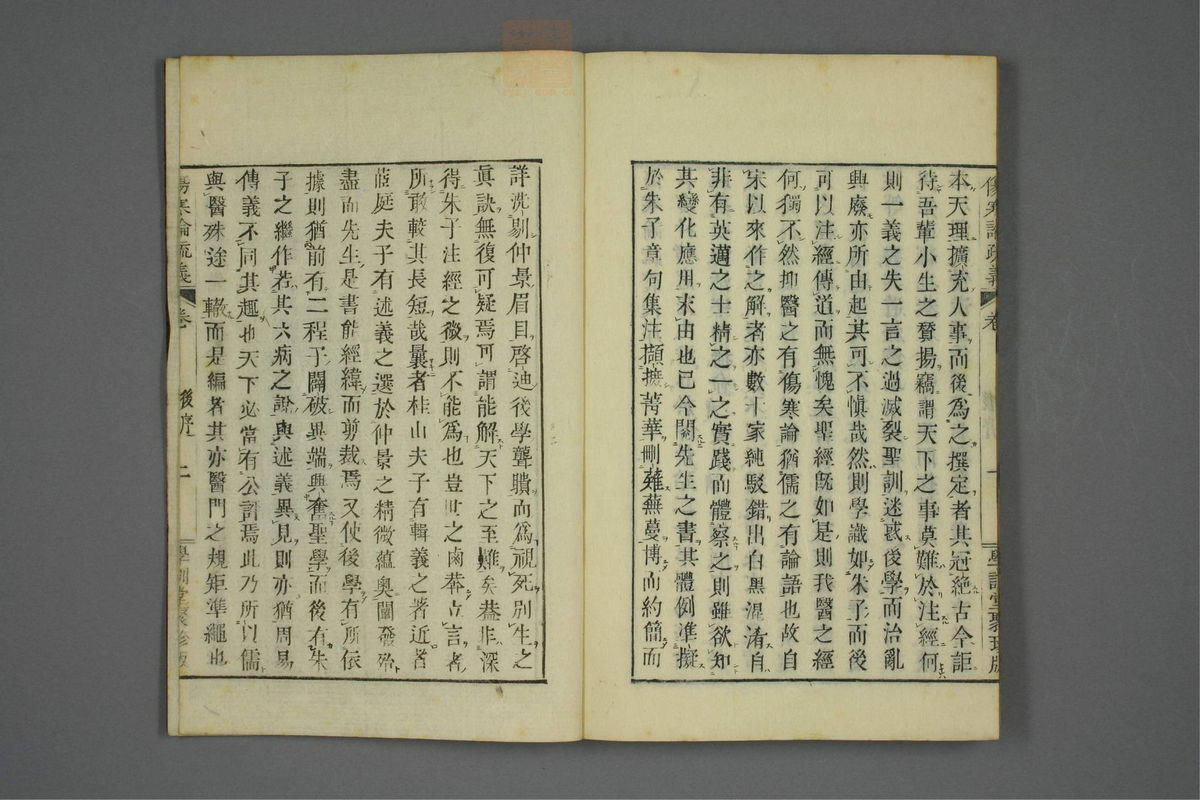 傷寒論疏義
卷
學訓堂聚珍版
本天理擴充人事而後爲之撰定者其冠絶古今詎
待吾輩小生之贊揚竊謂天下之事莫難於注經何
則一義之失一言之過滅裂聖訓迷惑後學而治亂
興廢亦所由起其可不愼哉然則學識如朱子而後
可以注經傳道而無愧矣聖經旣如是則我醫之經
何獨不然抑醫之有傷寒論猶儒之有論語也故自
宋以來作之解者亦數十家純駁錯出白黑混淆自
非有英邁之士精之一之實踐而體察之則雖欲知
其變化應用末由也已今閱先生之書其體例準擬
於朱子章句集注擷摭菁華刪薙蕪蔓博而約簡而
詳洗剔仲景眉目啓迪後學聾聵而爲視死別生之
眞訣無復可疑焉可謂能解天下之至難矣蓋非深
得朱子注經之微則不能爲也豈世之鹵莽立言者
所敢較其長短哉曩者桂山夫子有輯義之著近者
茝庭夫子有述義之選於仲景之精微蘊奧闡發殆
盡而先生是書能經緯而剪裁焉又使後學有所依
據則猶前有二程子闢破異端興奮聖學而後有朱
子之繼作若其六病之說與述義異見則亦猶周易
傳義不同其趣也天下必當有公評焉此乃所以儒
與醫殊途一轍而是編者其亦醫門之規矩準繩也
傷寒論疏義
卷
後序
二
學訓堂聚珍版